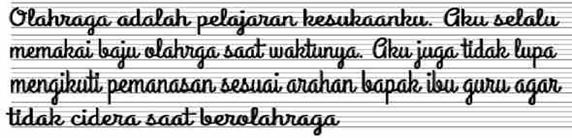 Olahraga adalah pelajaran kesukaanku. Aku selalu
memakai baju olahrga saat waktunya. Aku juga tidak lupa
mengikuti pemanasan sesuai arahan bapak ibu guru agar
tidak cidera saat berolahraga